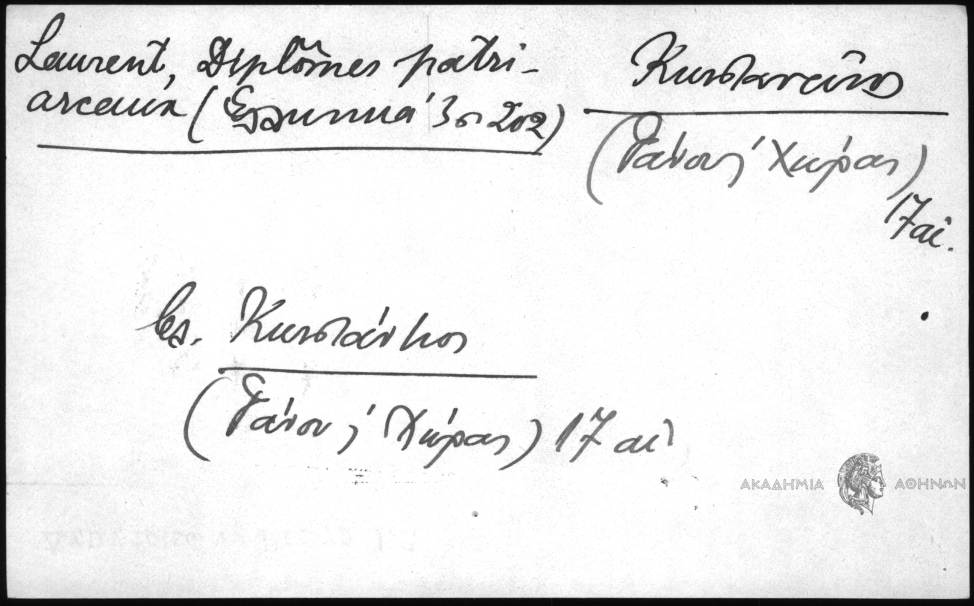 Laurent, Diplômes patri-
arcaux (Ελληνικά 3ος 202)
Κωνσταντῖνος
(Γάνου & Χώρας)
17 αἰ.
Βλ. Κωνστάντιος
(Γάνου & Χώρας) 17 αἰ
ΑΚΑΔΗΜΙΑ ΑΘΗΝΩΝ